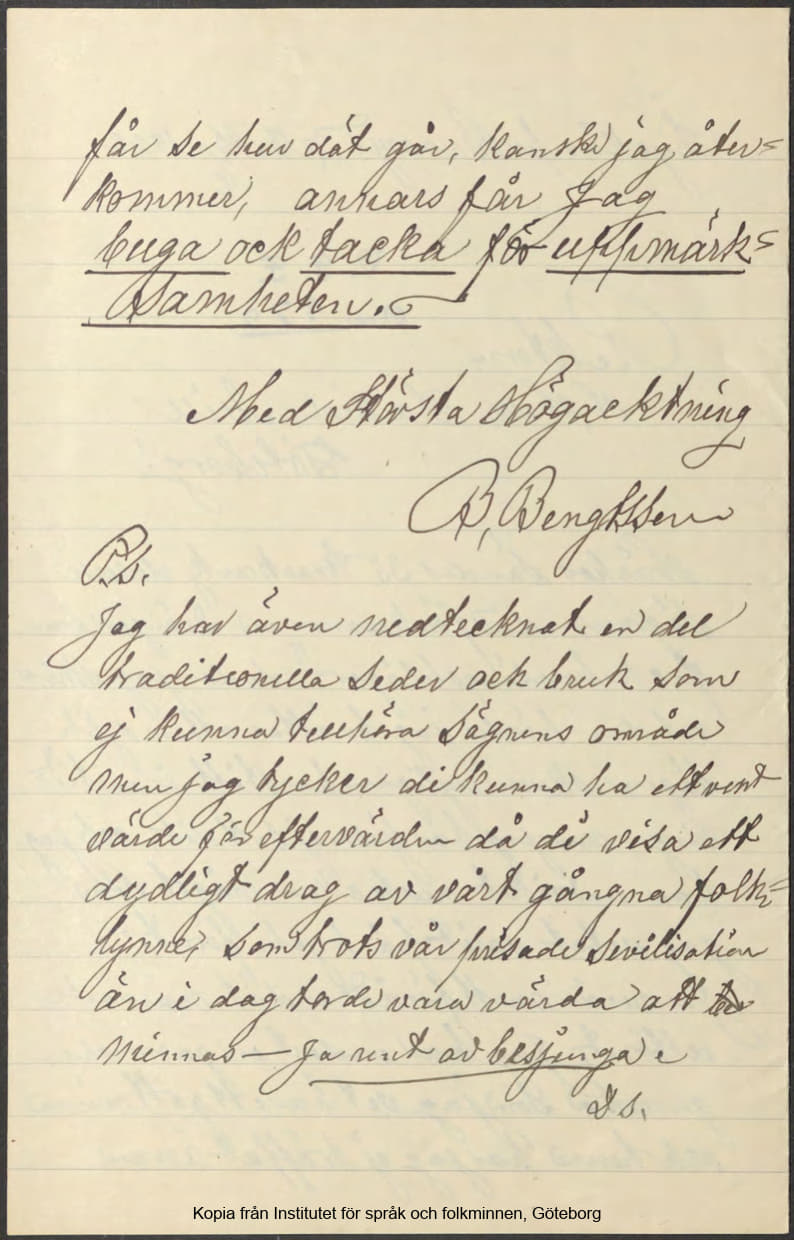 får se hur dät går, kanske jag åter=
kommer, annars får Jag
buga ock tacka för uppmärk=
samheten.
Med Största Högacktning
B, Bengtsson
P.s.
Jag har även nedtecknat en del
traditionella seder ock bruk som
ej kunna tillhöra Sägnens område
men jag tycker di kunna ha ett visst
värde för eftervärden då di visa ett
dydligt drag av vårt gångna folk=
lynne, som trots vår prisade Sivilisation
än i dag torde vara värda att
minnas — Ja rent av besjunga.
D S.
Kopia från Institutet för språk och folkminnen, Göteborg